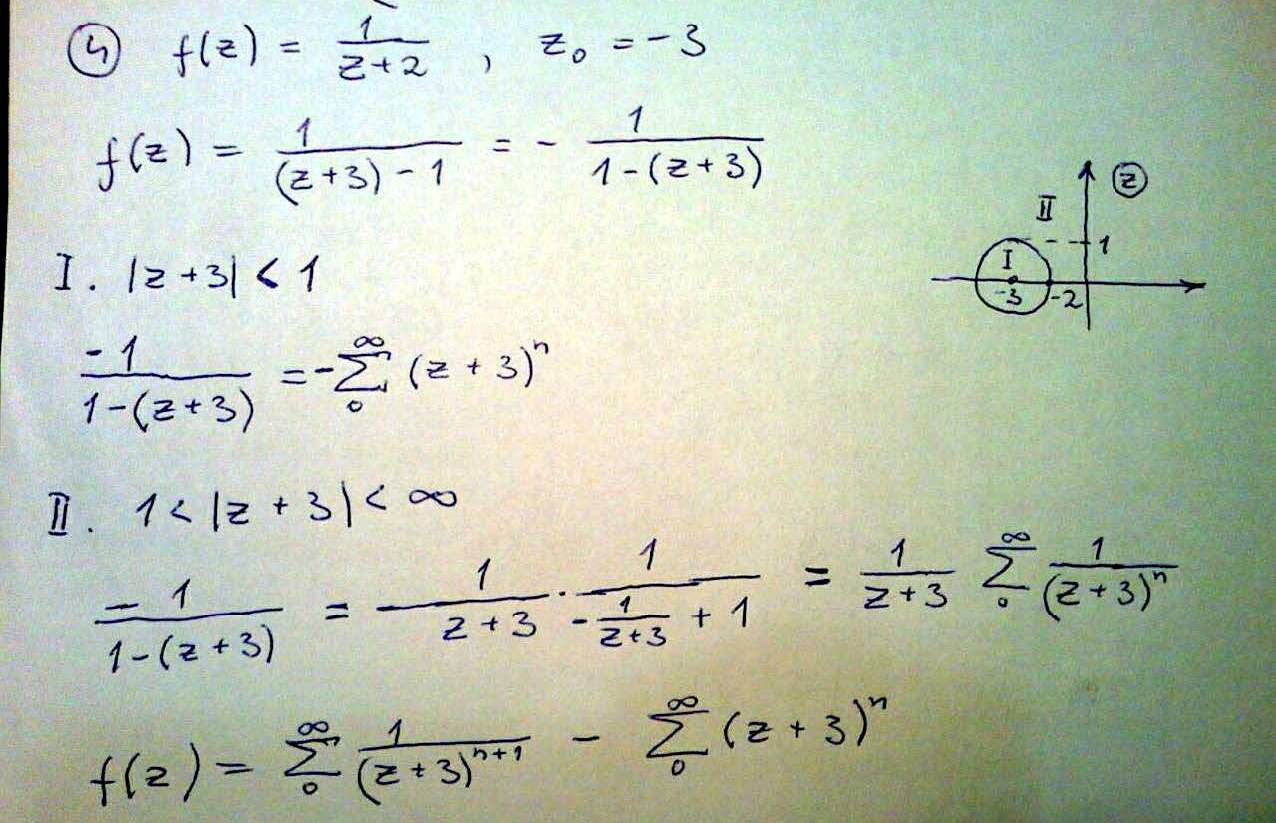 ④ f(z) = 1/(z+2) , z₀ = -3
f(z) = 1/((z+3)-1) = - 1/(1-(z+3))
z
II
1
I
-3 -2
I. |z+3| < 1
-1/(1-(z+3)) = -∑₀^∞ (z+3)ⁿ
II. 1 < |z+3| < ∞
-1/(1-(z+3)) = 1/(z+3) · 1/(-1/(z+3) + 1) = 1/(z+3) ∑₀^∞ 1/(z+3)ⁿ
f(z) = ∑₀^∞ 1/(z+3)ⁿ⁺¹ - ∑₀^∞ (z+3)ⁿ